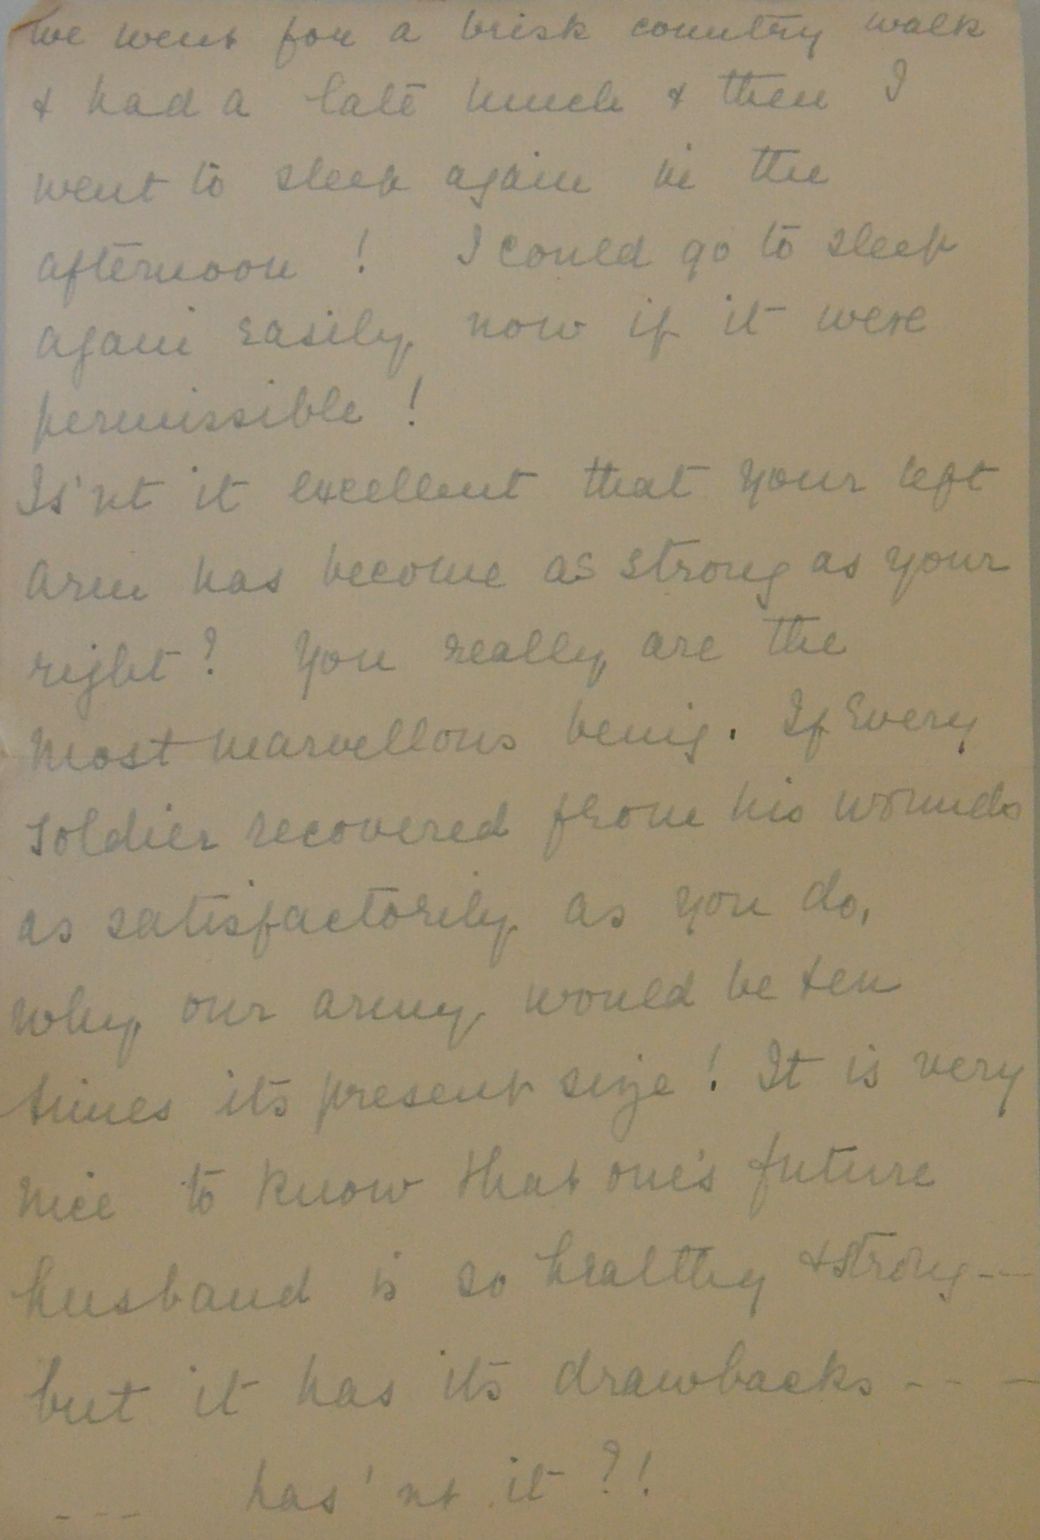 we went for a brisk country walk
& had a late lunch & then I
went to sleep again in the
afternoon ! I could go to sleep
again easily now if it were
permissible !
Is'nt it excellent that your left
arm has become as strong as your
right ? You really are the
most marvellous being. If Every
soldier recovered from his wounds
as satisfactorily as you do,
why, our army would be ten
times its present size ! It is very
nice to know that one's future
husband is so healthy & strong ---
but it has its drawbacks ---
--- has'nt it ?!